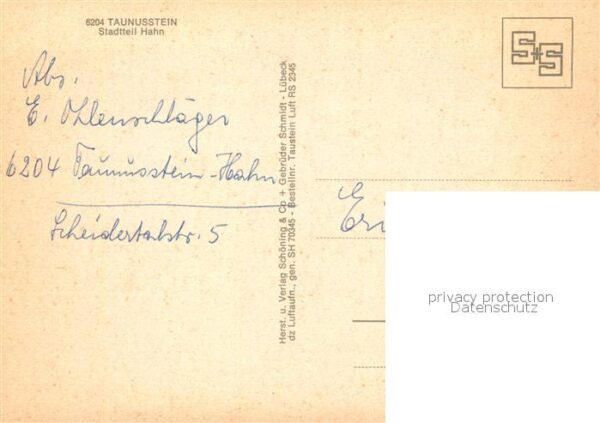 6204 TAUNUSSTEIN
Stadtteil Hahn
S+S
Abs.
E. Ohlenschläger
6204 Taunusstein-Hahn
Scheidertalstr. 5
Herst. u. Verlag Schöning & Co + Gebrüder Schmidt - Lübeck
dz Luftaufn., gen. SH 70345 - Bestellnr. Taustein Luft RS 2345
Eri
privacy protection
Datenschutz